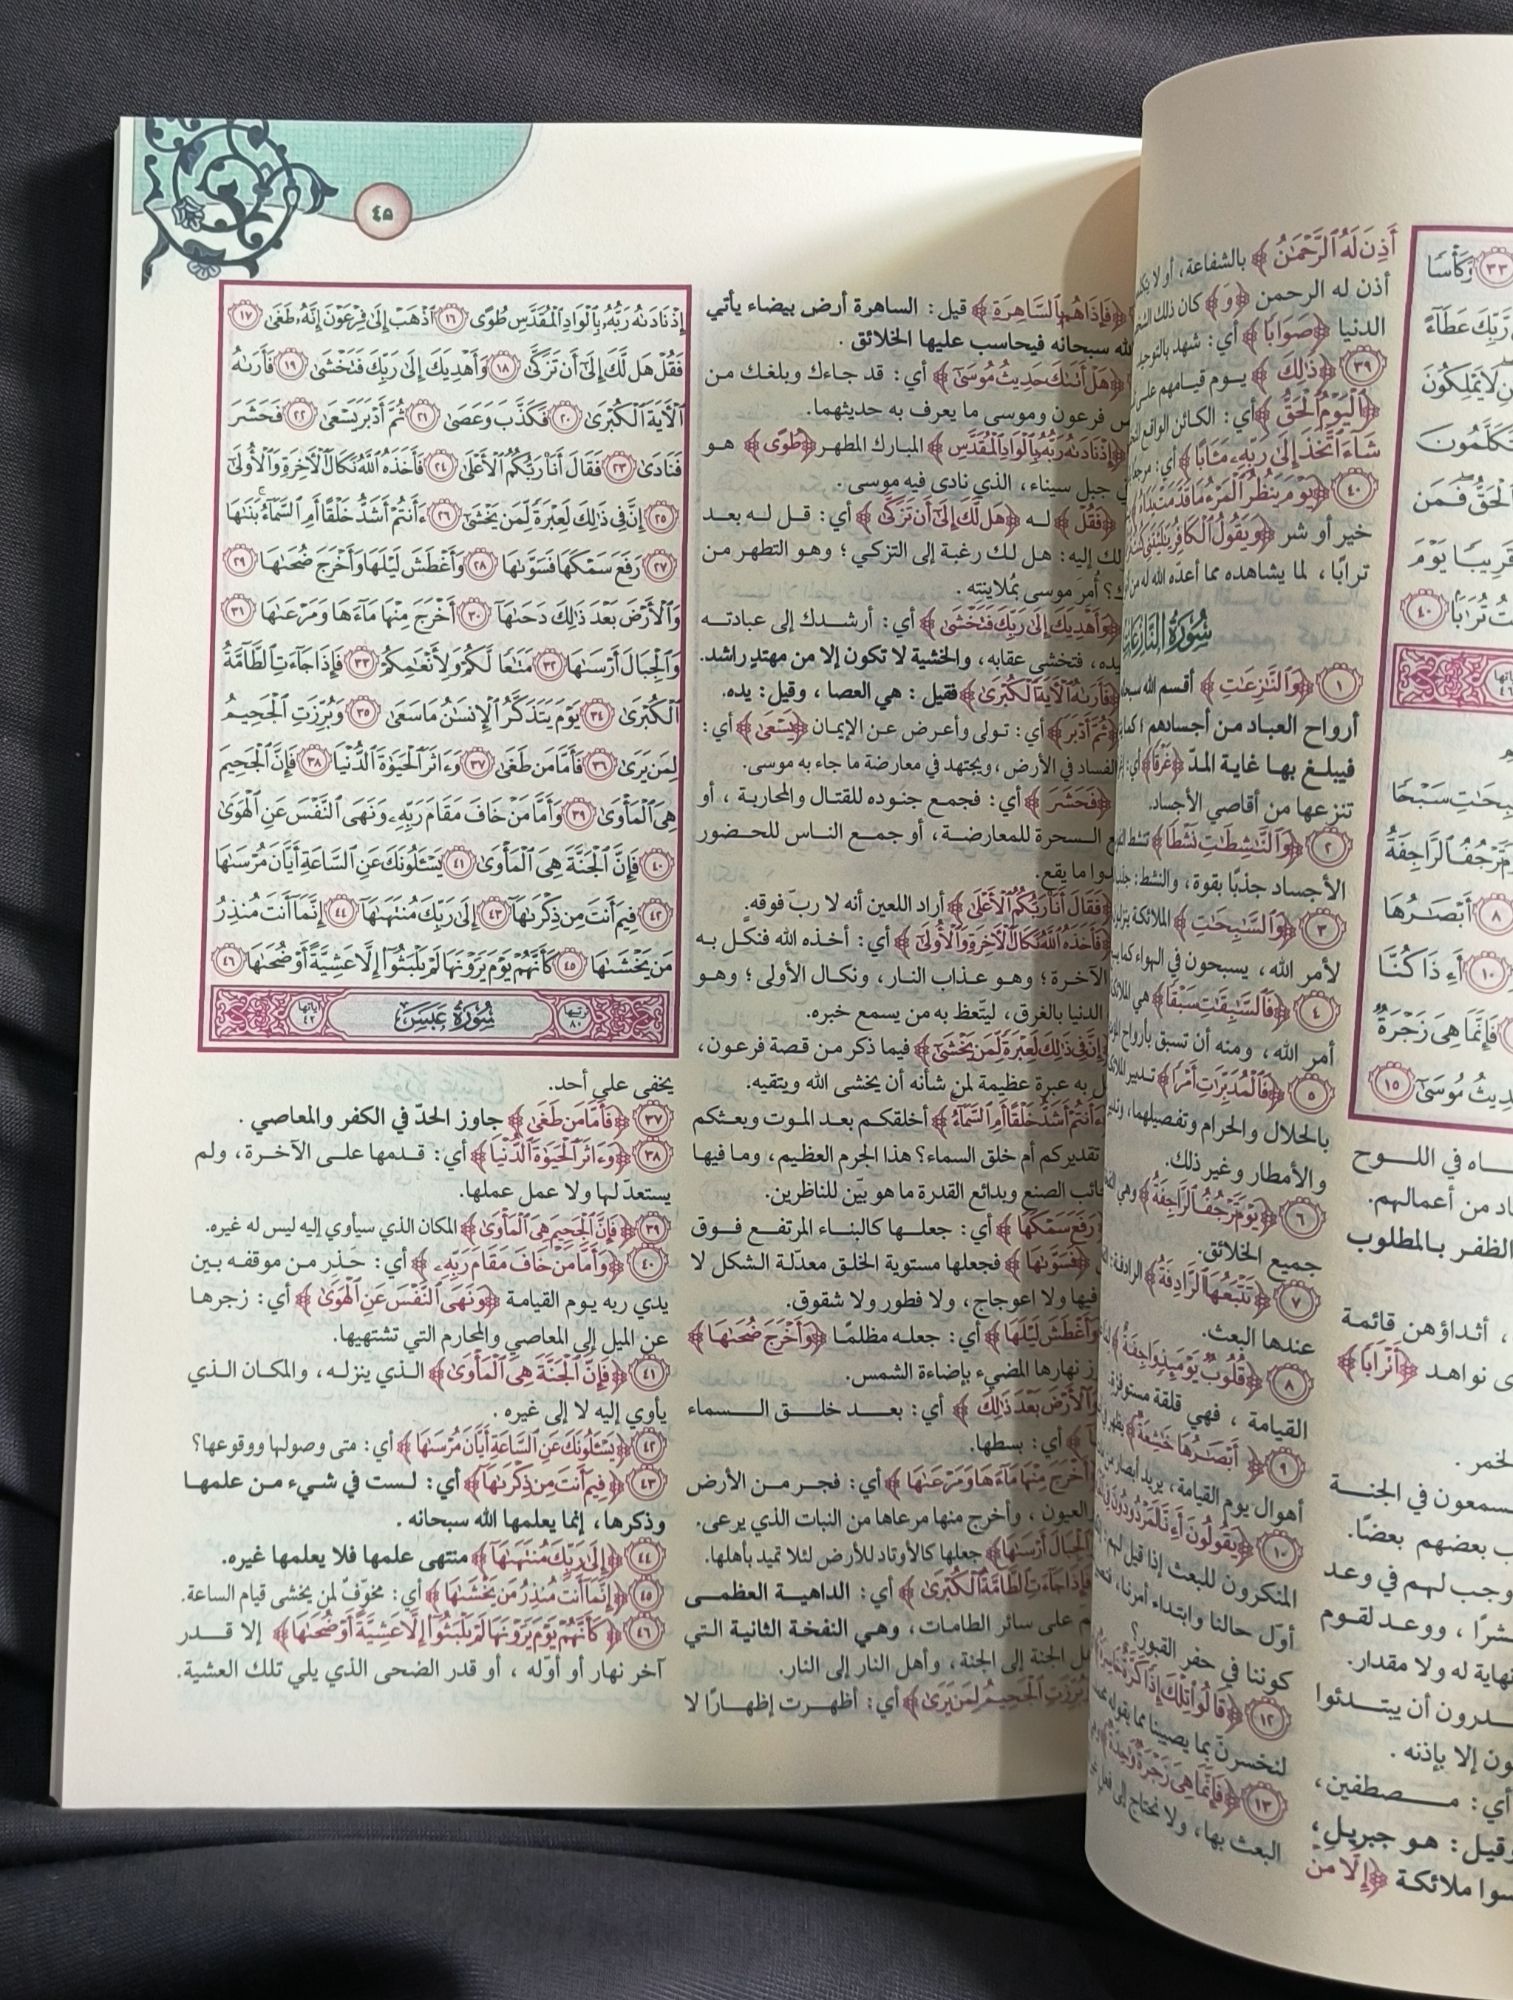 ٤٥
إِذْ نَادَىٰهُ رَبُّهُۥ بِٱلْوَادِ ٱلْمُقَدَّسِ طُوًى ١٦ ٱذْهَبْ إِلَىٰ فِرْعَوْنَ إِنَّهُۥ طَغَىٰ ١٧
فَقُلْ هَل لَّكَ إِلَىٰٓ أَن تَزَكَّىٰ ١٨ وَأَهْدِيَكَ إِلَىٰ رَبِّكَ فَتَخْشَىٰ ١٩ فَأَرَىٰهُ
ٱلْءَايَةَ ٱلْكُبْرَىٰ ٢٠ فَكَذَّبَ وَعَصَىٰ ٢١ ثُمَّ أَدْبَرَ يَسْعَىٰ ٢٢ فَحَشَرَ
فَنَادَىٰ ٢٣ فَقَالَ أَنَا۠ رَبُّكُمُ ٱلْأَعْلَىٰ ٢٤ فَأَخَذَهُ ٱللَّهُ نَكَالَ ٱلْءَاخِرَةِ وَٱلْأُولَىٰٓ
٢٥ إِنَّ فِى ذَٰلِكَ لَعِبْرَةً لِّمَن يَخْشَىٰٓ ٢٦ ءَأَنتُمْ أَشَدُّ خَلْقًا أَمِ ٱلسَّمَآءُ ۚ بَنَىٰهَا
٢٧ رَفَعَ سَمْكَهَا فَسَوَّىٰهَا ٢٨ وَأَغْطَشَ لَيْلَهَا وَأَخْرَجَ ضُحَىٰهَا ٢٩
وَٱلْأَرْضَ بَعْدَ ذَٰلِكَ دَحَىٰهَآ ٣٠ أَخْرَجَ مِنْهَا مَآءَهَا وَمَرْعَىٰهَا ٣١
وَٱلْجِبَالَ أَرْسَىٰهَا ٣٢ مَتَٰعًا لَّكُمْ وَلِأَنْعَٰمِكُمْ ٣٣ فَإِذَا جَآءَتِ ٱلطَّآمَّةُ
ٱلْكُبْرَىٰ ٣٤ يَوْمَ يَتَذَكَّرُ ٱلْإِنسَٰنُ مَا سَعَىٰ ٣٥ وَبُرِّزَتِ ٱلْجَحِيمُ
لِمَن يَرَىٰ ٣٦ فَأَمَّا مَن طَغَىٰ ٣٧ وَءَاثَرَ ٱلْحَيَوٰةَ ٱلدُّنْيَا ٣٨ فَإِنَّ ٱلْجَحِيمَ
هِىَ ٱلْمَأْوَىٰ ٣٩ وَأَمَّا مَنْ خَافَ مَقَامَ رَبِّهِۦ وَنَهَى ٱلنَّفْسَ عَنِ ٱلْهَوَىٰ
٤٠ فَإِنَّ ٱلْجَنَّةَ هِىَ ٱلْمَأْوَىٰ ٤١ يَسْـَٔلُونَكَ عَنِ ٱلسَّاعَةِ أَيَّانَ مُرْسَىٰهَا
٤٢ فِيمَ أَنتَ مِن ذِكْرَىٰهَآ ٤٣ إِلَىٰ رَبِّكَ مُنتَهَىٰهَآ ٤٤ إِنَّمَآ أَنتَ مُنذِرُ
مَن يَخْشَىٰهَا ٤٥ كَأَنَّهُمْ يَوْمَ يَرَوْنَهَا لَمْ يَلْبَثُوٓا۟ إِلَّا عَشِيَّةً أَوْ ضُحَىٰهَا ٤٦
ترتيبها ٨٠ سُورَةُ عَبَسَ آياتها ٤٢
﴿فَإِذَا هُم بِٱلسَّاهِرَةِ﴾ قيل: الساهرة أرض بيضاء يأتي
الله سبحانه فيحاسب عليها الخلائق.
﴿هَلْ أَتَىٰكَ حَدِيثُ مُوسَىٰٓ﴾ أي: قد جاءك وبلغك من
فرعون وموسى ما يعرف به حديثهما.
﴿إِذْ نَادَىٰهُ رَبُّهُۥ بِٱلْوَادِ ٱلْمُقَدَّسِ﴾ المبارك المطهر ﴿طُوًى﴾ هو
جبل سيناء، الذي نادى فيه موسى.
﴿فَقُلْ﴾ له ﴿هَل لَّكَ إِلَىٰٓ أَن تَزَكَّىٰ﴾ أي: قل له بعد
إليه: هل لك رغبة إلى التزكي؛ وهو التطهر من
أُمر موسى بمُلاينته.
﴿وَأَهْدِيَكَ إِلَىٰ رَبِّكَ فَتَخْشَىٰ﴾ أي: أرشدك إلى عبادته
فتخشى عقابه، والخشية لا تكون إلا من مهتدٍ راشد.
﴿فَأَرَىٰهُ ٱلْءَايَةَ ٱلْكُبْرَىٰ﴾ فقيل: هي العصا، وقيل: يده.
﴿ثُمَّ أَدْبَرَ﴾ أي: تولى وأعرض عن الإيمان ﴿يَسْعَىٰ﴾ أي:
الفساد في الأرض، ويجتهد في معارضة ما جاء به موسى.
﴿فَحَشَرَ﴾ أي: فجمع جنوده للقتال والمحاربة، أو
السحرة للمعارضة، أو جمع الناس للحضور
ما يقع.
﴿فَقَالَ أَنَا۠ رَبُّكُمُ ٱلْأَعْلَىٰ﴾ أراد اللعين أنه لا ربّ فوقه.
﴿فَأَخَذَهُ ٱللَّهُ نَكَالَ ٱلْءَاخِرَةِ وَٱلْأُولَىٰٓ﴾ أي: أخذه الله فنكّل به
الآخرة؛ وهو عذاب النار، ونكال الأولى؛ وهو
الدنيا بالغرق، ليتّعظ به من يسمع خبره.
﴿إِنَّ فِى ذَٰلِكَ لَعِبْرَةً لِّمَن يَخْشَىٰٓ﴾ فيما ذكر من قصة فرعون،
به عبرة عظيمة لمن شأنه أن يخشى الله ويتقيه.
﴿ءَأَنتُمْ أَشَدُّ خَلْقًا أَمِ ٱلسَّمَآءُ﴾ أخلقكم بعد الموت وبعثكم
تقديركم أم خلق السماء؟ هذا الجرم العظيم، وما فيها
الصنع وبدائع القدرة ما هو بيّن للناظرين.
﴿رَفَعَ سَمْكَهَا﴾ أي: جعلها كالبناء المرتفع فوق
﴿فَسَوَّىٰهَا﴾ فجعلها مستوية الخلق معدّلة الشكل لا
فيها ولا اعوجاج، ولا فطور ولا شقوق.
﴿وَأَغْطَشَ لَيْلَهَا﴾ أي: جعله مظلمًا ﴿وَأَخْرَجَ ضُحَىٰهَا﴾
نهارها المضيء بإضاءة الشمس.
﴿وَٱلْأَرْضَ بَعْدَ ذَٰلِكَ﴾ أي: بعد خلق السماء
أي: بسطها.
﴿أَخْرَجَ مِنْهَا مَآءَهَا وَمَرْعَىٰهَا﴾ أي: فجر من الأرض
العيون، وأخرج منها مرعاها من النبات الذي يرعى.
﴿وَٱلْجِبَالَ أَرْسَىٰهَا﴾ جعلها كالأوتاد للأرض لئلا تميد بأهلها.
﴿فَإِذَا جَآءَتِ ٱلطَّآمَّةُ ٱلْكُبْرَىٰ﴾ أي: الداهية العظمى
على سائر الطامات، وهي النفخة الثانية التي
الجنة إلى الجنة، وأهل النار إلى النار.
﴿وَبُرِّزَتِ ٱلْجَحِيمُ لِمَن يَرَىٰ﴾ أي: أظهرت إظهارًا لا
يخفى على أحد.
٣٧ ﴿فَأَمَّا مَن طَغَىٰ﴾ جاوز الحدّ في الكفر والمعاصي.
٣٨ ﴿وَءَاثَرَ ٱلْحَيَوٰةَ ٱلدُّنْيَا﴾ أي: قدمها على الآخرة، ولم
يستعدّ لها ولا عمل عملها.
٣٩ ﴿فَإِنَّ ٱلْجَحِيمَ هِىَ ٱلْمَأْوَىٰ﴾ المكان الذي سيأوي إليه ليس له غيره.
٤٠ ﴿وَأَمَّا مَنْ خَافَ مَقَامَ رَبِّهِۦ﴾ أي: حَذِر من موقفه بين
يدي ربه يوم القيامة ﴿وَنَهَى ٱلنَّفْسَ عَنِ ٱلْهَوَىٰ﴾ أي: زجرها
عن الميل إلى المعاصي والمحارم التي تشتهيها.
٤١ ﴿فَإِنَّ ٱلْجَنَّةَ هِىَ ٱلْمَأْوَىٰ﴾ الذي ينزله، والمكان الذي
يأوي إليه لا إلى غيره.
٤٢ ﴿يَسْـَٔلُونَكَ عَنِ ٱلسَّاعَةِ أَيَّانَ مُرْسَىٰهَا﴾ أي: متى وصولها ووقوعها؟
٤٣ ﴿فِيمَ أَنتَ مِن ذِكْرَىٰهَآ﴾ أي: لست في شيء من علمها
وذكرها، إنما يعلمها الله سبحانه.
٤٤ ﴿إِلَىٰ رَبِّكَ مُنتَهَىٰهَآ﴾ منتهى علمها فلا يعلمها غيره.
٤٥ ﴿إِنَّمَآ أَنتَ مُنذِرُ مَن يَخْشَىٰهَا﴾ أي: مخوّفٌ لمن يخشى قيام الساعة.
٤٦ ﴿كَأَنَّهُمْ يَوْمَ يَرَوْنَهَا لَمْ يَلْبَثُوٓا۟ إِلَّا عَشِيَّةً أَوْ ضُحَىٰهَا﴾ إلا قدر
آخر نهار أو أوّله، أو قدر الضحى الذي يلي تلك العشية.
٣٣ وَكَأْسًا
رَّبِّكَ عَطَآءً
لَا يَمْلِكُونَ
يَتَكَلَّمُونَ
ٱلْحَقُّ ۖ فَمَن
قَرِيبًا يَوْمَ
تُرَٰبًۢا ٤٠
آياتها ٤٦
سَبْحًا
تَرْجُفُ ٱلرَّاجِفَةُ
٨ أَبْصَٰرُهَا
١٠ أَءِذَا كُنَّا
فَإِنَّمَا هِىَ زَجْرَةٌ
حَدِيثُ مُوسَىٰٓ ١٥
في اللوح
من أعمالهم.
الظفر بالمطلوب
، أثداؤهن قائمة
نواهد ﴿أَتْرَابًا﴾
الخمر.
يسمعون في الجنة
بعضهم بعضًا.
وجب لهم في وعد
عشرًا، ووعد لقوم
نهاية له ولا مقدار.
يقدرون أن يبتدئوا
إلا بإذنه.
أي: مصطفين،
وقيل: هو جبريل،
ملائكة ﴿إِلَّا مَنْ
أَذِنَ لَهُ ٱلرَّحْمَٰنُ﴾ بالشفاعة، أو لا
أذن له الرحمن ﴿وَ﴾ كان ذلك
الدنيا ﴿صَوَابًا﴾ أي: شهد بالتوحيد
٣٩ ﴿ذَٰلِكَ﴾ يوم قيامهم على
﴿ٱلْيَوْمُ ٱلْحَقُّ﴾ أي: الكائن الواقع
شَآءَ ٱتَّخَذَ إِلَىٰ رَبِّهِۦ مَـَٔابًا﴾ أي:
٤٠ ﴿يَوْمَ يَنظُرُ ٱلْمَرْءُ مَا قَدَّمَتْ يَدَاهُ﴾
خير أو شر ﴿وَيَقُولُ ٱلْكَافِرُ يَٰلَيْتَنِى كُنتُ
ترابًا، لما يشاهده مما أعدّه الله له من
سُورَةُ النَّازِعَاتِ
١ ﴿وَٱلنَّٰزِعَٰتِ﴾ أقسم الله
أرواح العباد من أجسادهم؛ كما
فيبلغ بها غاية المدّ ﴿غَرْقًا﴾ أي:
تنزعها من أقاصي الأجساد.
٢ ﴿وَٱلنَّٰشِطَٰتِ نَشْطًا﴾ تنشط
الأجساد جذبًا بقوة، والنشط:
٣ ﴿وَٱلسَّٰبِحَٰتِ﴾ الملائكة
لأمر الله، يسبحون في الهواء كما
٤ ﴿فَٱلسَّٰبِقَٰتِ سَبْقًا﴾ هي
أمر الله، ومنه أن تسبق بأرواح
٥ ﴿فَٱلْمُدَبِّرَٰتِ أَمْرًا﴾ تدبير
بالحلال والحرام وتفصيلهما،
والأمطار وغير ذلك.
٦ ﴿يَوْمَ تَرْجُفُ ٱلرَّاجِفَةُ﴾ وهي
جميع الخلائق.
٧ ﴿تَتْبَعُهَا ٱلرَّادِفَةُ﴾ الرادفة:
عندها البعث.
٨ ﴿قُلُوبٌ يَوْمَئِذٍ وَاجِفَةٌ﴾
القيامة، فهي قلقة مستوفزة
٩ ﴿أَبْصَٰرُهَا خَٰشِعَةٌ﴾
أهوال يوم القيامة، يريد أبصار من
١٠ ﴿يَقُولُونَ أَءِنَّا لَمَرْدُودُونَ فِى
المنكرون للبعث إذا قيل لهم:
أوّل حالنا وابتداء أمرنا،
كوننا في حفر القبور؟
١٢ ﴿قَالُوا۟ تِلْكَ إِذًا كَرَّةٌ خَاسِرَةٌ﴾
لنخسرنّ بما يصيبنا مما يقوله
١٣ ﴿فَإِنَّمَا هِىَ زَجْرَةٌ وَٰحِدَةٌ﴾
البعث بها، ولا نحتاج إلى